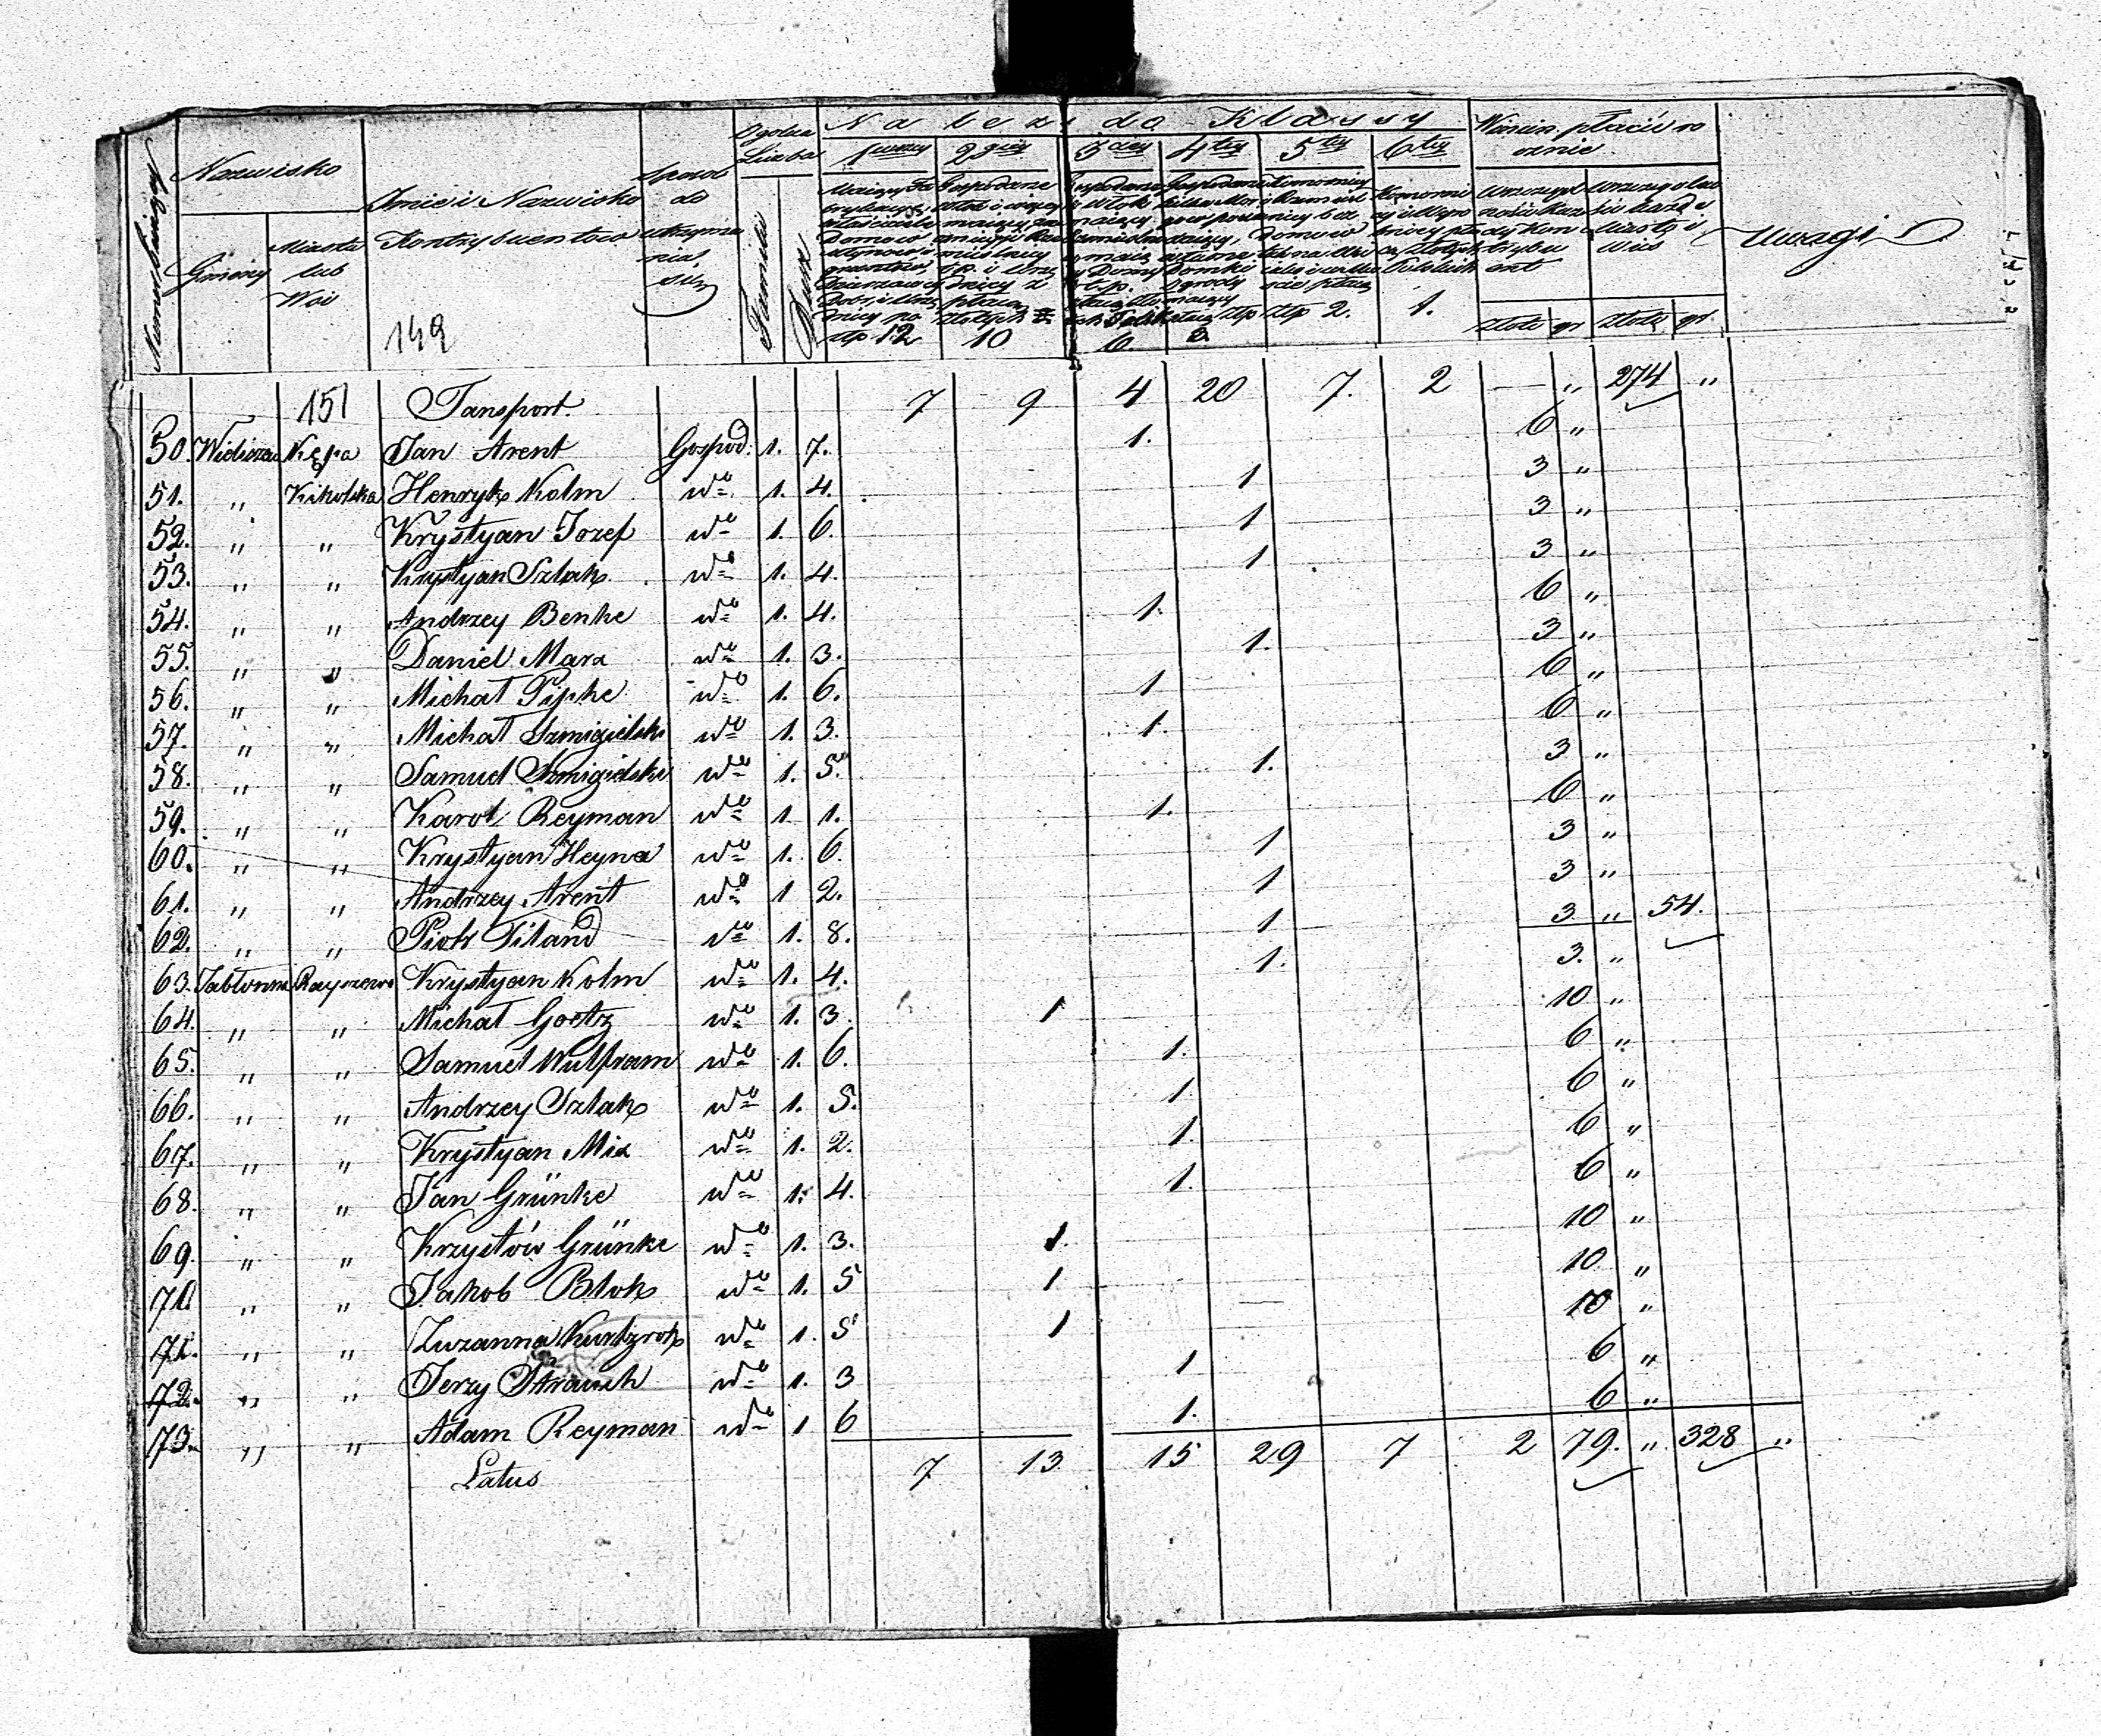 Numer bieżący
Nazwisko
Gminy
Miasta lub Wsi
Imie i Nazwisko Kontrybuentow
Sposob do utrzymania się
Ogolna Liczba
Familii
Dusz
Należy do Klassy
1wszey 2giey 3ciey 4tey 5tey 6tey
złp. 12 10 6. 3. złp 2. 1.
Winien płacić rocznie
złote gr złote gr.
Uwagi
149
151 Tansport. 7 9 4 20 7. 2 — „ 274 „
50. Wieliszew Kępa Jan Arent Gospod: 1. 7. 1. 6 „
51. „ Kikolska Henryk Kolm do 1. 4. 1 3 „
52. „ „ Krystyan Jozef do 1. 6. 1 3 „
53. „ „ Krystyan Szlak do 1. 4. 1 3 „
54. „ „ Andrzey Benke do 1. 4. 1. 6 „
55. „ „ Daniel Marx do 1. 3. 1. 3 „
56. „ „ Michał Pipke do 1. 6. 1 6 „
57. „ „ Michał Szmigielski do 1. 3. 1. 6 „
58. „ „ Samuel Szmigielski do 1. 5. 1. 3 „
59. „ „ Karol Reyman do 1 1. 1. 6 „
60. „ „ Krystyan Heyna do 1. 6. 1 3 „
61. „ „ Andrzey Arent do 1 2. 1 3 „
62. „ „ Piotr Filand do 1. 8. 1 3 „ 54.
63. Jabłonna Rayszewo Krystyan Kolm do 1. 4. 1. 3. „
64. „ „ Michał Goetz do 1. 3. 1 10 „
65. „ „ Samuel Wulfram do 1. 6. 1. 6 „
66. „ „ Andrzey Szlak do 1. 5. 1. 6 „
67. „ „ Krystyan Mix do 1. 2. 1. 6 „
68. „ „ Jan Grünke do 1. 4. 1. 6 „
69. „ „ Krzystów Grünke do 1. 3. 1. 10 „
70. „ „ Jakob Blok do 1. 5 1 10 „
71. „ „ Zuzanna Kurtzrok do 1. 5 1 10 „
72. „ „ Jerzy Strauch do 1. 3 1 6 „
73. „ „ Adam Reyman do 1 6 1. 6 „
Latus 7 13 15 29 7 2 79. „ 328 „